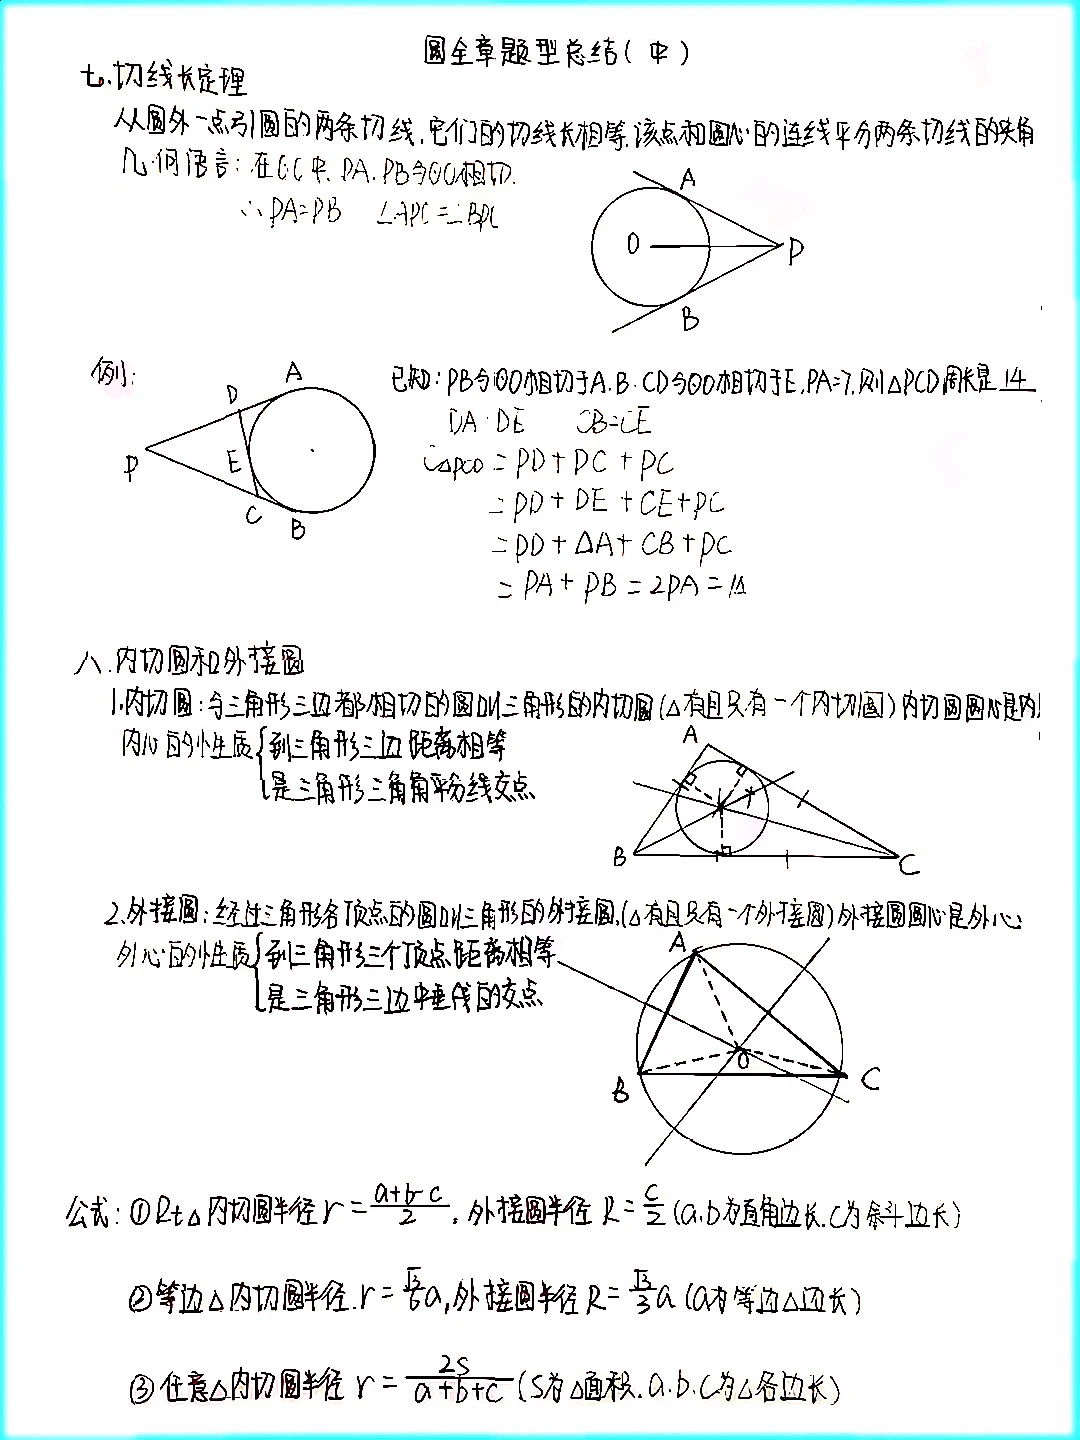 圆全章题型总结(中)
七.切线长定理
从圆外一点引圆的两条切线,它们的切线长相等.该点和圆心的连线平分两条切线的夹角
几何语言:在⊙O中,PA、PB与⊙O相切.
∴PA=PB ∠APO=∠BPO
A
O
P
B
例:
已知:PB与⊙O相切于A.B.CD与⊙O相切于E,PA=7,则△PCD周长是14
D
A
P
E
C
B
DA=DE CB=CE
C△PCD=PD+DC+PC
=PD+DE+CE+PC
=PD+DA+CB+PC
=PA+PB=2PA=14
八.内切圆和外接圆
1.内切圆:与三角形三边都相切的圆叫三角形的内切圆(△有且只有一个内切圆)内切圆圆心是内
内心的性质{到三角形三边距离相等
是三角形三角角平分线交点
A
B
C
2.外接圆:经过三角形各顶点的圆叫三角形的外接圆.(△有且只有一个外接圆)外接圆圆心是外心
外心的性质{到三角形三个顶点距离相等
是三角形三边中垂线的交点
A
O
B
C
公式:①Rt△内切圆半径r=a+b-c/2,外接圆半径R=c/2(a.b为直角边长.c为斜边长)
②等边△内切圆半径.r=√3/6a,外接圆半径R=√3/3a(a为等边△边长)
③任意△内切圆半径r=2S/a+b+c(S为△面积.a.b.c为△各边长)